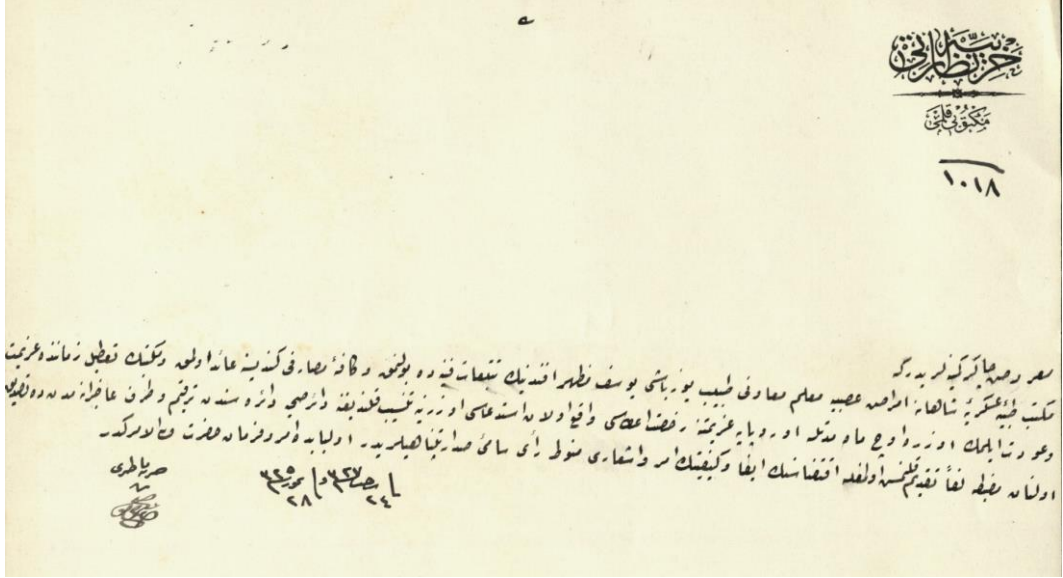 حربیه نظارتی
مکتوبی قلمی
١٠١٨
معروض چاکر کمینه‌لریدر که
مکتب طبیهٔ عسکریهٔ شاهانه امراض عصبیه معلم معاونی طبیب یوزباشی یوسف مظهر افندینك تتبعات فنیه‌ده بولنمق و کافهٔ مصارفی کندیسنه عائد اولمق و مکتبك تعطیل زماننده عزیمت
وعودت ایلمك اوزره اوچ ماه مدتله اوروپایه عزیمتنه رخصت اعطاسی واقع اولان استدعاسی اوزرینه تنسیب قلندیغنه دائر صحیه دائره‌سندن ترقیم و طرف عاجزانه‌مدن ده تصدیق
اولنان مضبطه لفاً تقدیم قلنمش اولمغله اقتضاسنك ایفا و کیفیتك امر واشعاری منوط رأی سامیٔ صدارتپناهیلریدر اولبابده امر وفرمان حضرت من له الامرکدر
فی ٢٤ رجب ٣٢٧ و فی ٢٨ تموز ٣٢٥
حربیه ناظری